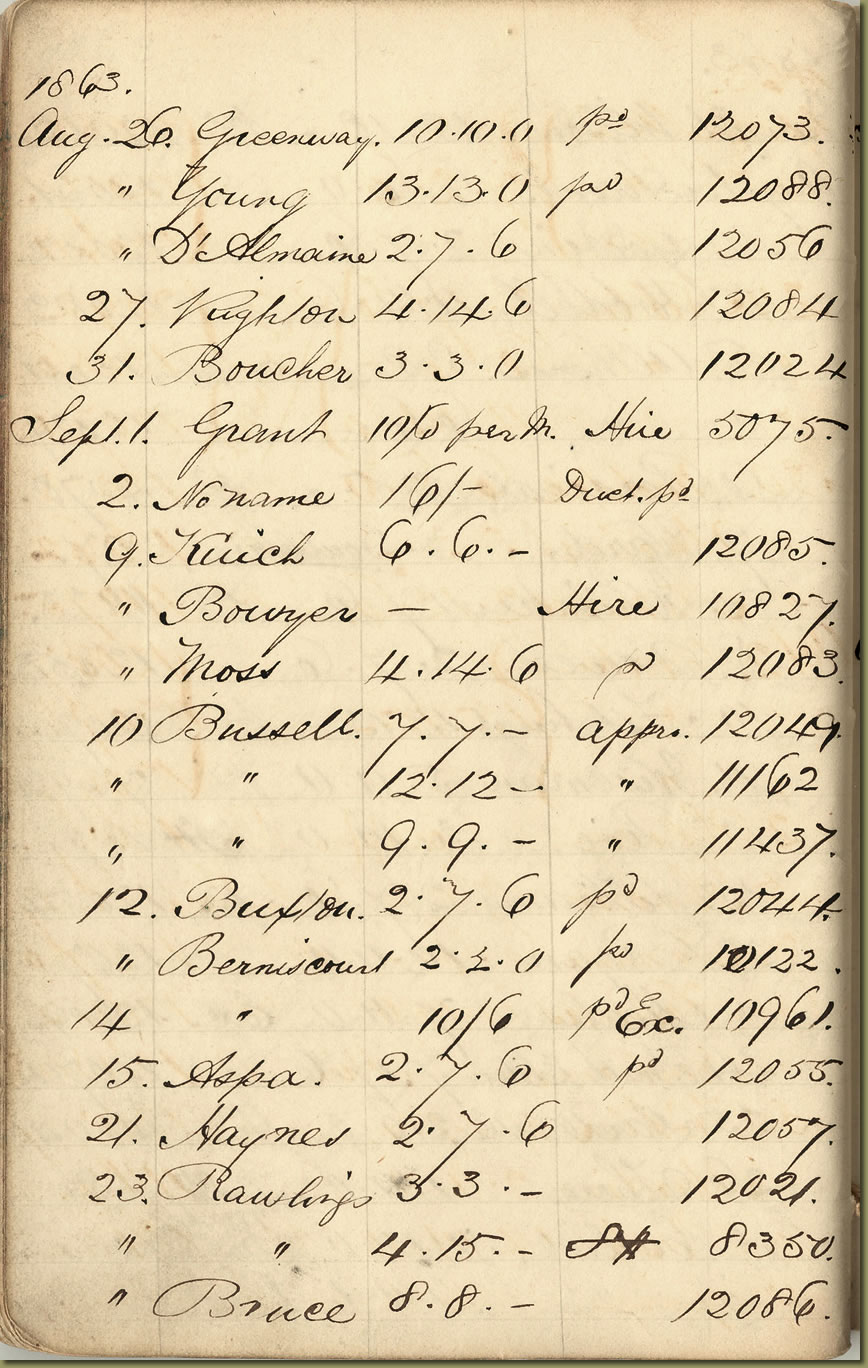 1863.
Aug. 26. Greenway. 10.10.0 pd 12073.
" Young 13.13.0 pd 12088.
" D'Almaine 2.7.6 12056
27. Knighton 4.14.6 12084
31. Boucher 3.3.0 12024
Sept. 1. Grant 10/6 per M. Hire 5075.
2. No name 16/- Duet. pd
9. Kuich 6.6.- 12085.
" Bowyer — Hire 10827.
" Moss 4.14.6 pd 12083.
10 Bussell. 7.7.- appro. 12049.
" " 12.12- " 11162
" " 9.9.- " 11437.
12. Buxton. 2.7.6 pd 12044.
" Berniscourt 2.2.0 pd 12122.
14 " 10/6 pd Ex. 10961.
15. Aspa. 2.7.6 pd 12055.
21. Haynes 2.7.6 12057.
23. Rawlings 3.3.- 12021.
" " 4.15.- 8350.
" Bruce 8.8.- 12086.